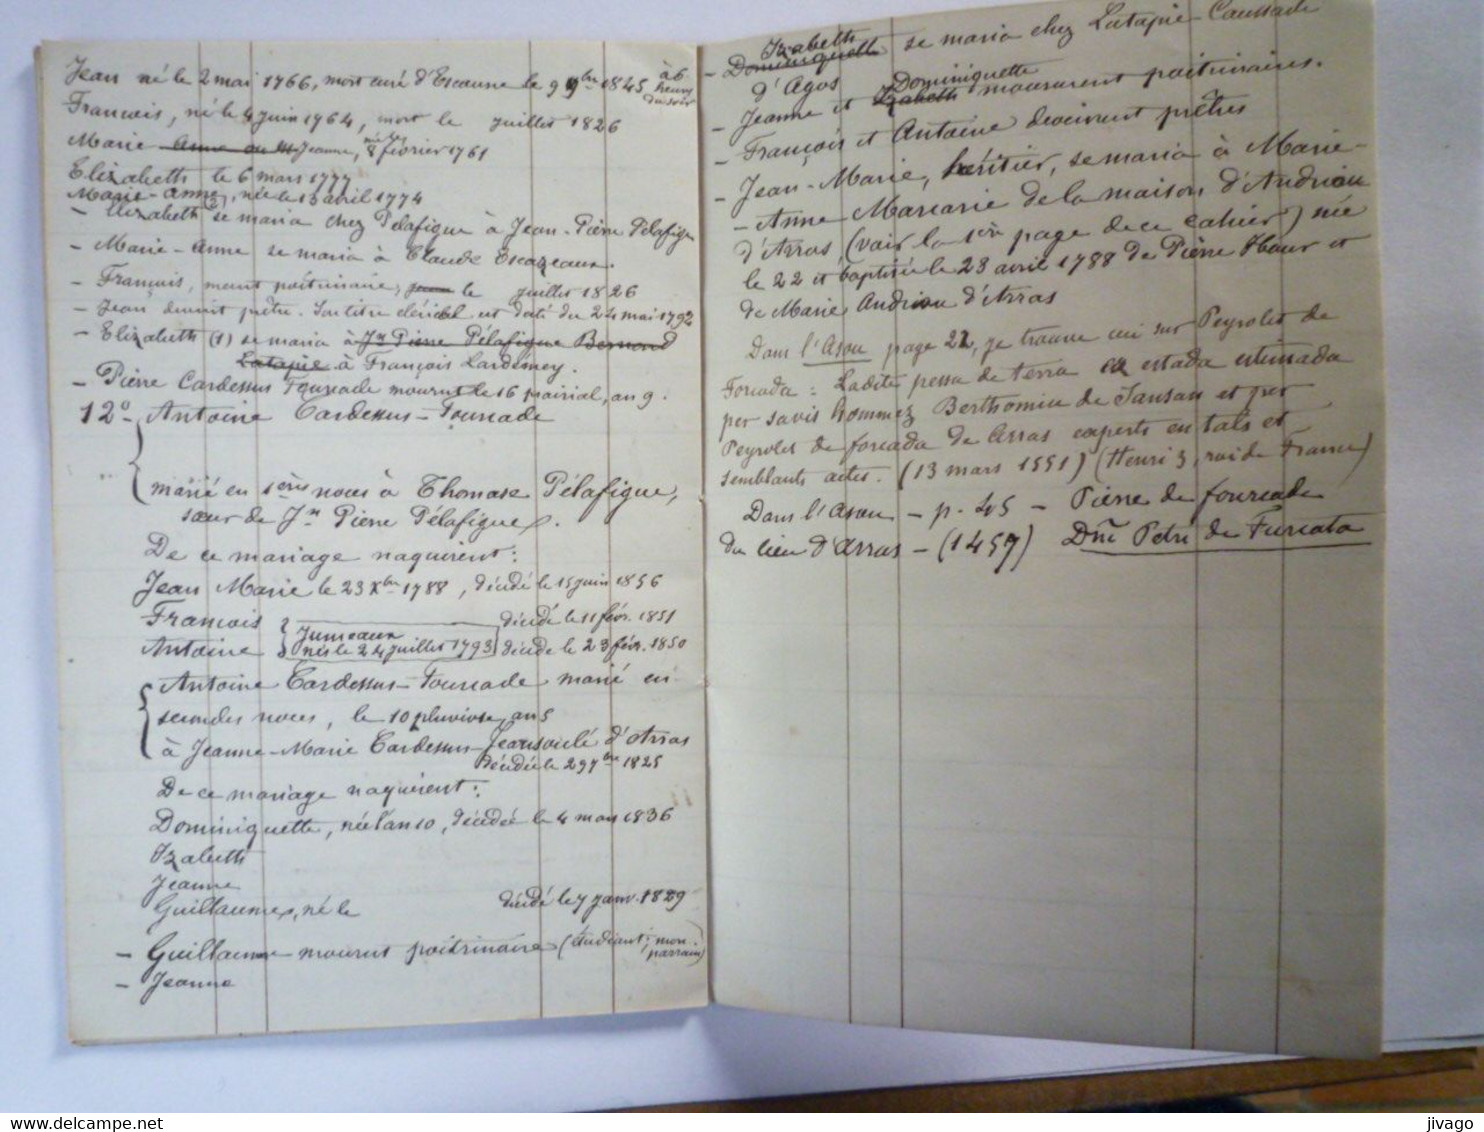 Jean né le 2 mai 1766, mort curé d'Escaune le 9 9bre 1845 à 6 heures du soir
François, né le 4 juin 1764, mort le juillet 1826
Marie Anne ou M Jeanne, née le 8 février 1761
Elizabeth le 6 mars 1777
Marie-Anne, née le 13 avril 1774
- Elizabeth se maria chez Pélafigue à Jean-Pierre Pélafigue
- Marie-Anne se maria à Claude Escazeaux.
- François, mourut poitrinaire, le juillet 1826
- Jean devint prêtre. Son titre clérical est daté du 24 mai 1792
- Elizabeth (1) se maria à Jn Pierre Pélafigue Bernond
Latapie à François Lardéney.
- Pierre Cardessus Fourcade mourut le 16 prairial, an 9.
12° - Antoine Cardessus-Fourcade
marié en 1ères noces à Thomase Pélafigue,
sœur de Jn Pierre Pélafigue.
De ce mariage naquirent:
Jean Marie le 23 Xbre 1788, décédé le 15 juin 1856
François décédé le 11 févr. 1851
Jumeaux
Antoine nés le 24 juillet 1793 décédé le 23 févr. 1850
Antoine Cardessus-Fourcade marié en
secondes noces, le 10 pluviose, an 5
à Jeanne-Marie Cardessus-Jeansoulé d'Arras
décédée le 29 7bre 1825
De ce mariage naquirent:
Dominiquette, née l'an 10, décédée le 4 mars 1836
Izabeth
Jeanne
Guillaume, né le décédé le 7 janv. 1829
- Guillaume mourut poitrinaire (étudiant; mon parrain)
- Jeanne
Izabeth
- Dominiquette se maria chez Latapie-Caussade
d'Agos
Dominiquette
- Jeanne et Izabeth moururent poitrinaires.
- François et Antoine devinrent prêtres
- Jean-Marie, héritier, se maria à Marie-
- Anne Marcarie de la maison d'Andriou
d'Arras (voir la 1ère page de ce cahier) née
le 22 et baptisée le 23 avril 1788 de Pierre Abaur et
de Marie Andriou d'Arras
Dans l'Asou page 22, je trouve ceci sur Peyrolet de
Forcada: Ladite pessa de terra es estada estimada
per savis hommez Berthomiu de Sansan et per
Peyrolet de forcada de Arras experts en tals et
semblants actes. (13 mars 1551) (Henri 3, roi de France)
Dans l'Asou - p. 45 - Pierre de fourcade
du lieu d'Arras - (1457) Dnc Petri de Furcata
jivago